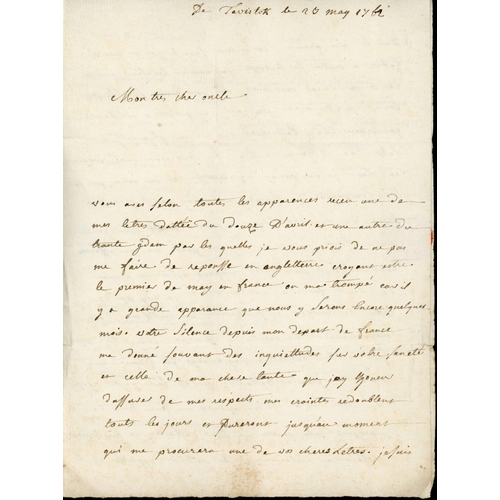 De Tavistok le 26 may 1762
Mon tres cher oncle
vous aves selon toutes les apparences receu une de
mes letres dattée du Douze D'avril et une autre du
trante qdem par les quelles je vous priois de ne pas
me faire de reponsse en angletterre croyant estre
le premie de may en france on ma trompé car il
y a grande apparance que nous y serons Encore quelques
mois. votre silence depuis mon depart de france
me donné souvant des inquiettudes sur votre santé
et cellé de ma chere tante que jay lhoneur
dassurer de mes respects mes craintes redoublent
touts les jours et Dureront jusquau moment
qui me procurera une de vos cheres Letres. je suis